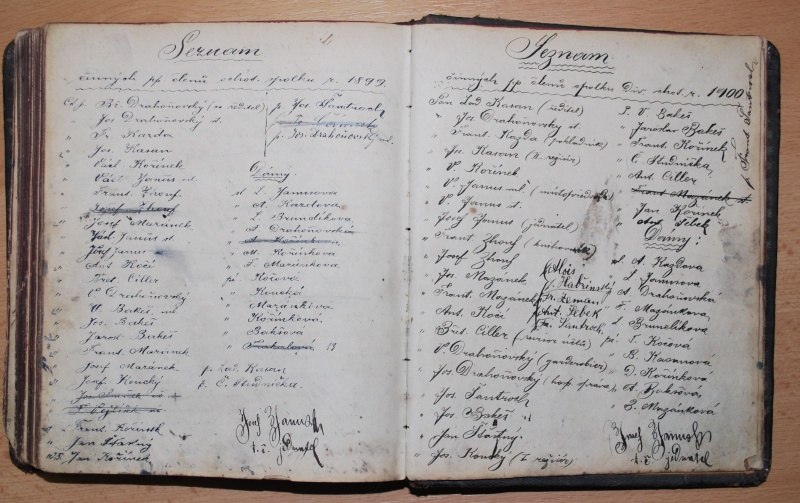 Seznam
činných pp členů ochot. spolku r. 1899.
Ctě p. Bř. Drahoňovský (co ředitel)
" Jos Drahoňovský st.
" Fr. Kazda
" Jos. Kasan
" Václ. Kořínek
" Václ. Janus ml
" Frant. Zhouf
" Josef Zhouf
" Josef Mazánek
" Václ. Janus st.
" Josef Janus
" Ant. Kočí
" Břet. Ciller
" V. Drahoňovský
" V. Bakeš ml
" Jos. Bakeš
" Jarosl Bakeš
" Frant. Mazánek
" Josef Mazánek
" Josef Konský
" Frant. Kořínek
" Jan Šťastný
" Jan Kořínek
p. Jos. Šantroch
p. Jos. Drahoňovský ml.
Dámy:
sl. L. Jamsová
" A. Kazdova
" L. Brunclíkova
" A. Drahoňovská
" A. Kořínkova
" M. Kořínkova
" F. Mazánkova
pí Kočova
" Konská
" Mazánkova
" Kořínková
" Bakšová
p. Lad. Kasan
p. C. Studnička
Josef Janus
t. č. jednatel
Seznam
činných pp členů spolku Div. ochot. r. 1900
Pan Lad Kasan (ředitel)
" Jos. Drahoňovský st.
" Frant. Kazda (pokladník)
" Jos. Kasan (I. režisér)
" V. Kořínek
" V. Janus ml (místopředseda)
" V. Janus st.
" Josef Janus (jednatel)
" Frant Zhouf (knihovník)
" Josef Zhouf
" Jos. Mazánek
" Frant. Mazánek
" Ant. Kočí
" Břet. Ciller
" V. Drahoňovský (garderobier)
" Jos. Drahoňovský (hosp. správce)
" Jos. Šantroch
" Jos Bakeš
" Jan Šťastný
" Jos. Konský (I. režisér)
Alois
Ant. Šebek
Fr. Šantroch
P. V. Bakeš
" Jaroslav Bakeš
" Frant. Kořínek
" C. Studnička
" Ant. Ciller
" Frant Mazánek st.
" Jan Kořínek
" Ant Šebek
Dámy:
sl. A. Kazdova
" L. Jamsova
" A. Drahoňovska
" F. Mazánkova
" L. Brunclíkova
pí. T. Kočová
" B. Kasanova
" D. Kořínkova
" A. Bakšova
" B. Mazánková
Josef Janus
t. č. jednatel
p. Frant Šantroch